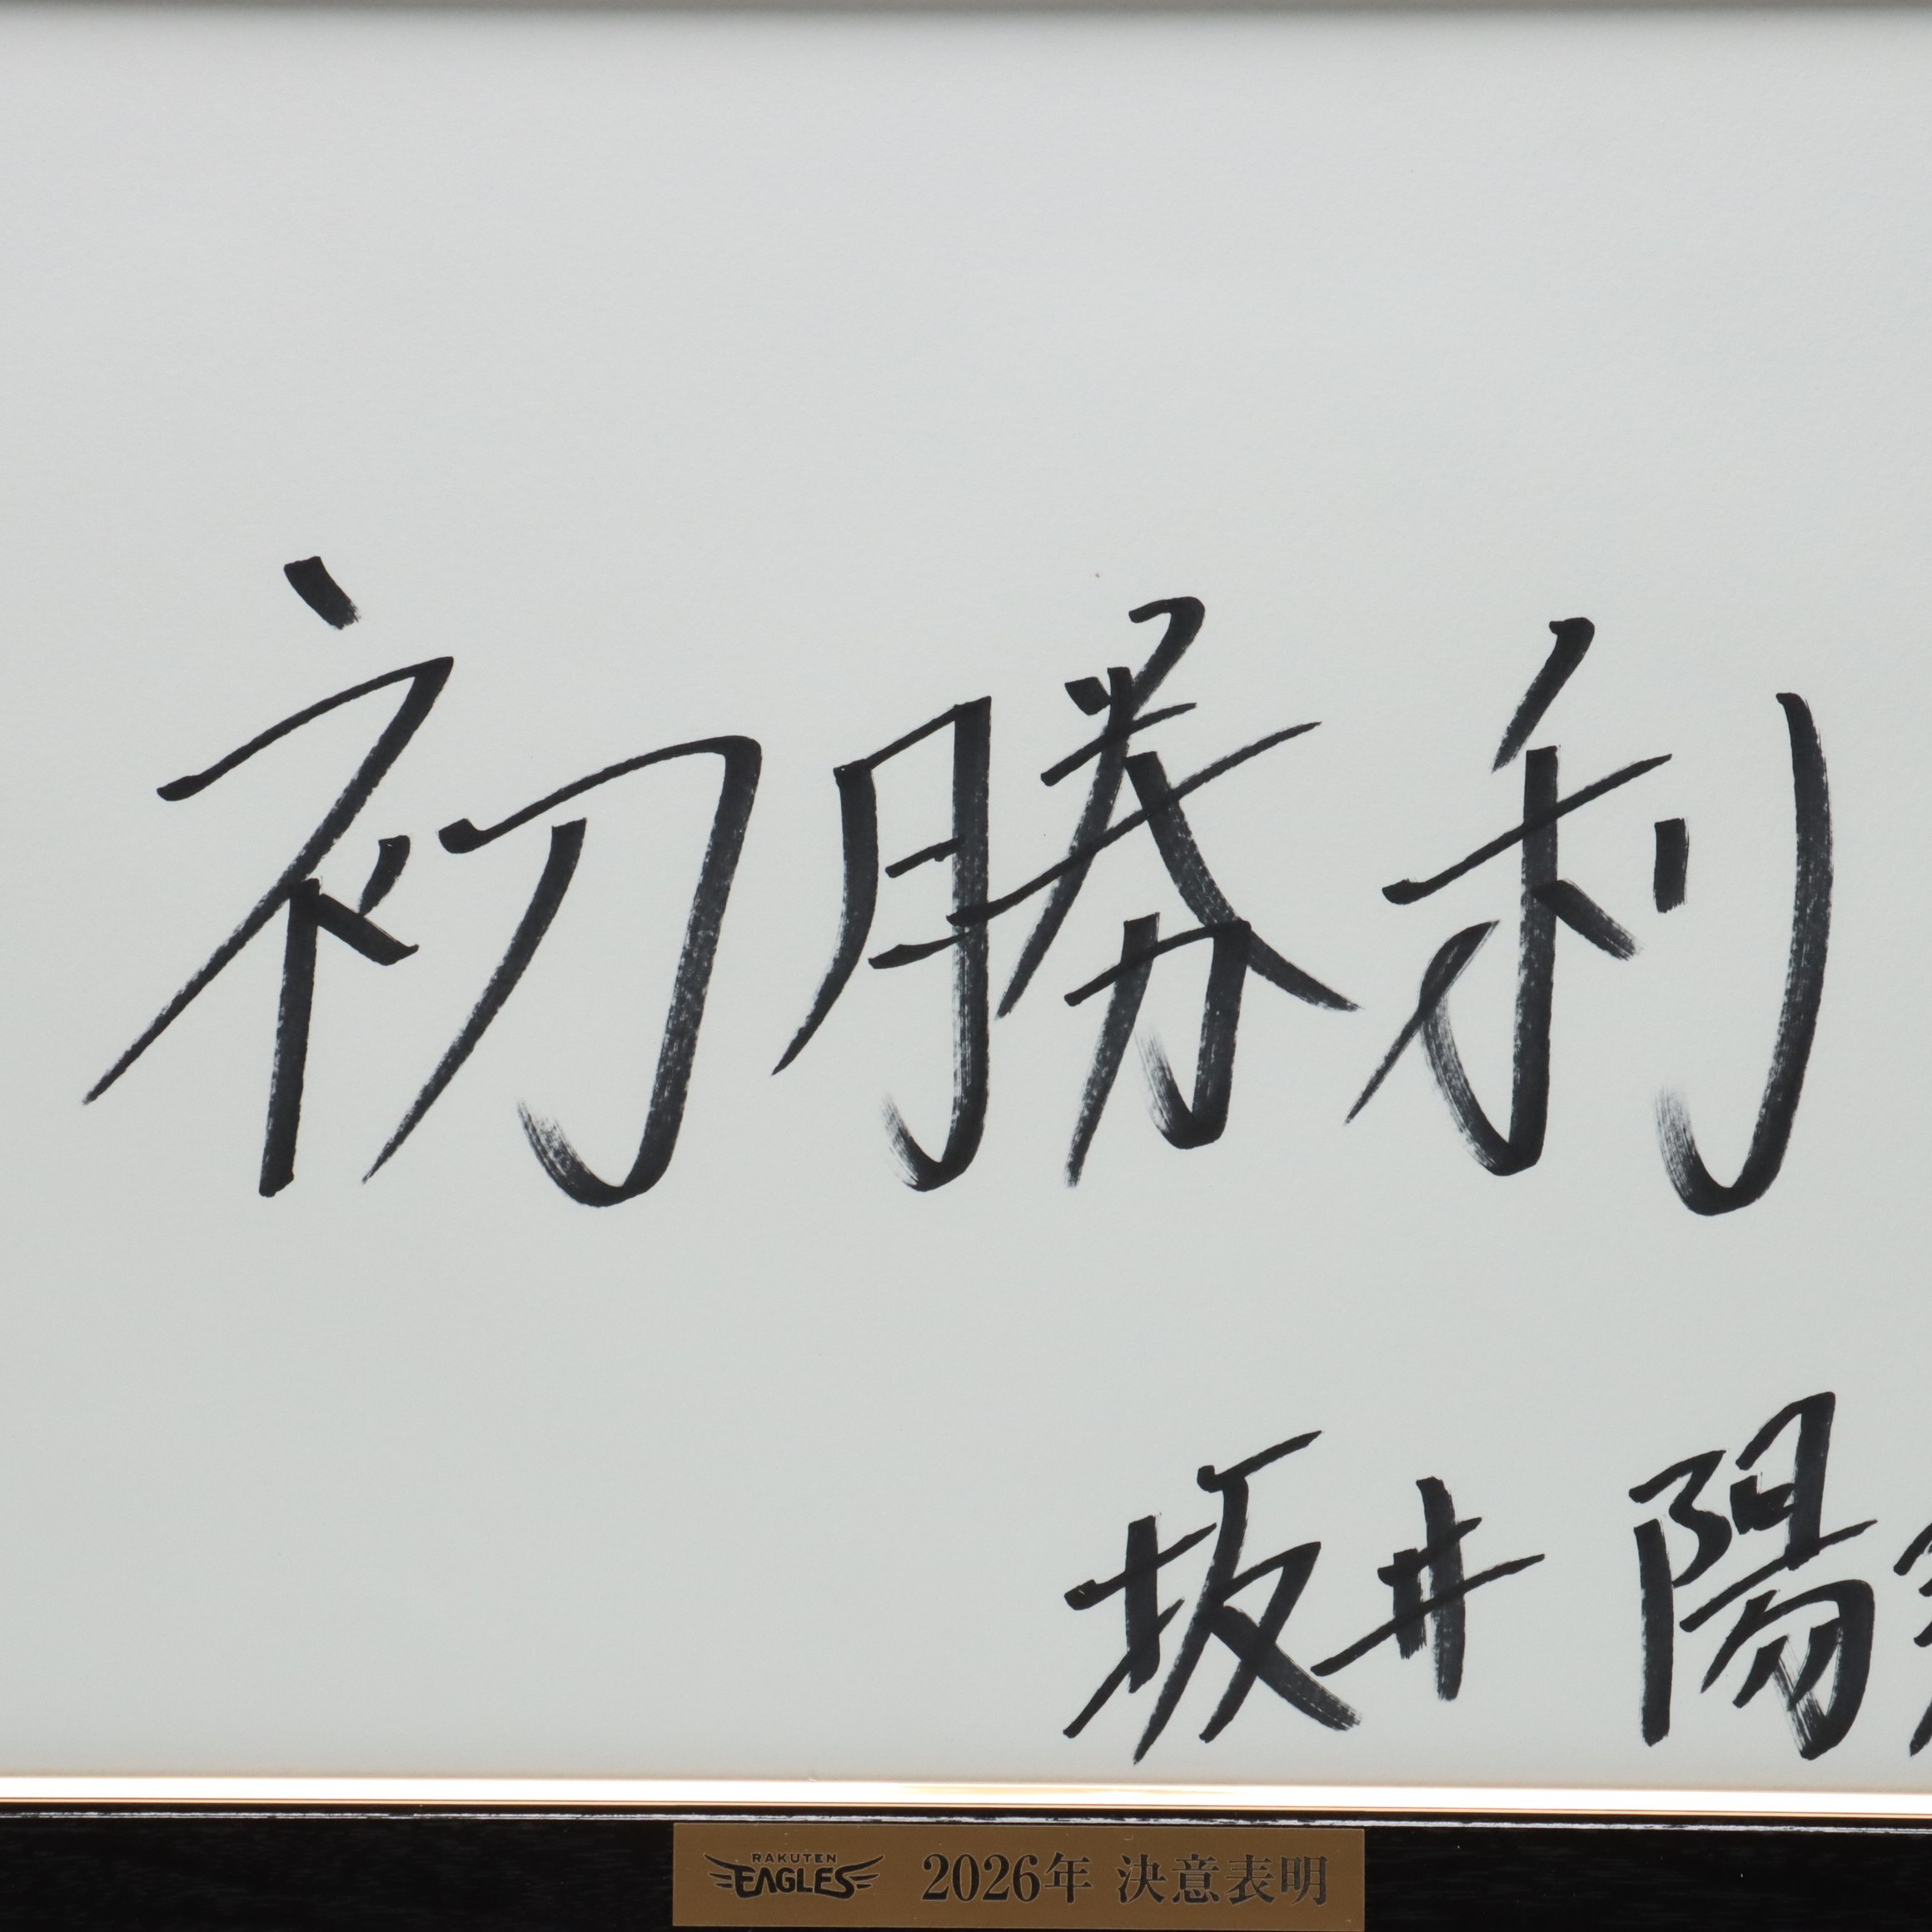 初勝利
坂井 陽
RAKUTEN
EAGLES
2026年 決意表明